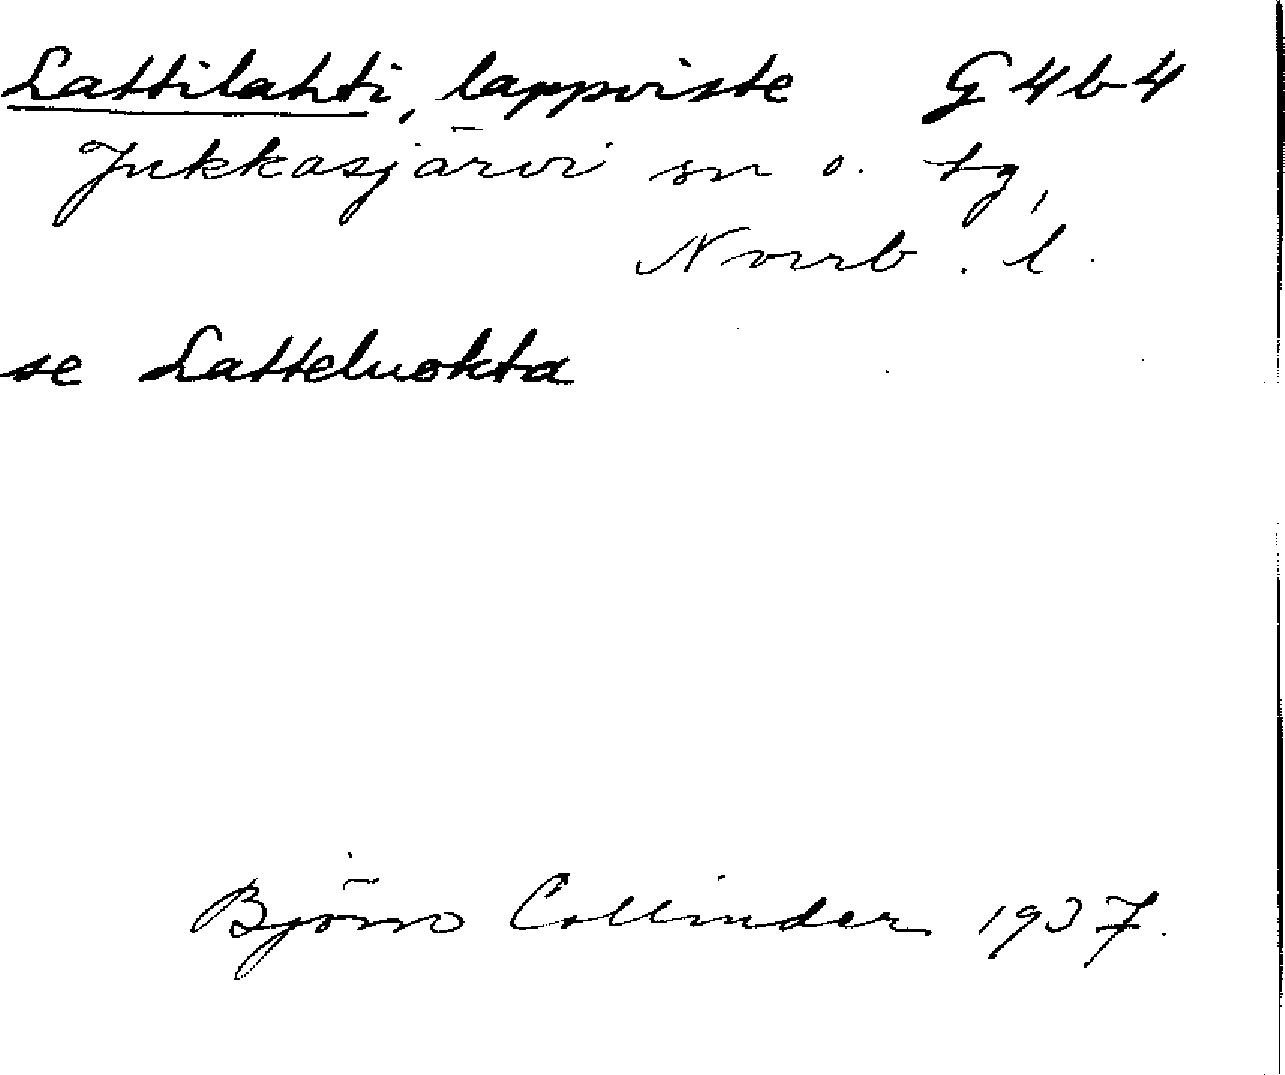 Lattilahti, lappviste G4b4
Jukkasjärvi sn o. tg,
Norrb. l.
se Latteluokta
Björn Collinder 1937.